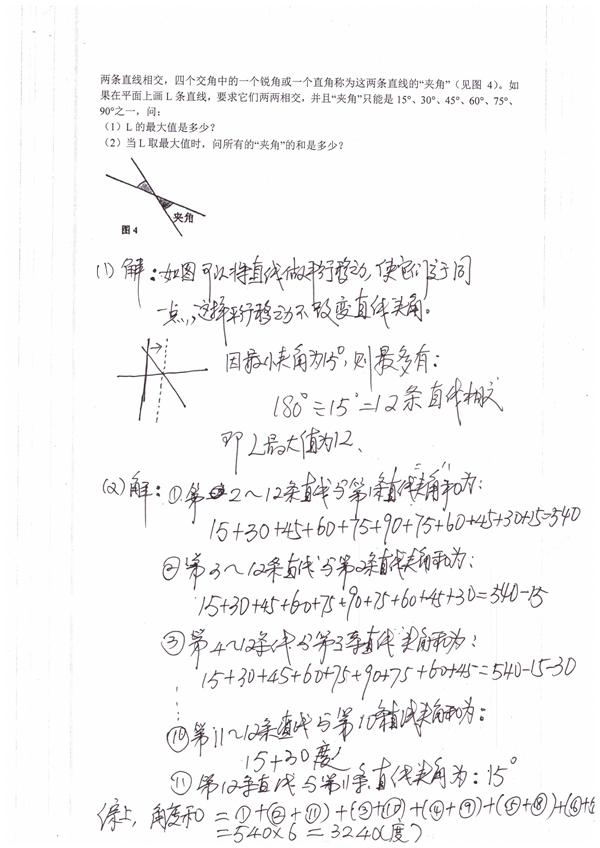 两条直线相交，四个交角中的一个锐角或一个直角称为这两条直线的“夹角”（见图 4）。如
果在平面上画 L 条直线，要求它们两两相交，并且“夹角”只能是 15°、30°、45°、60°、75°、
90°之一，问：
（1）L 的最大值是多少？
（2）当 L 取最大值时，问所有的“夹角”的和是多少？
夹角
图4
(1) 解：如图可以将直线做平行移动，使它们交于同
一点，这样平行移动不改变直线夹角。
因最小夹角为15°，则最多有：
180°÷15°=12条直线相交
即L最大值为12、
(2) 解：①第2～12条直线与第1条直线夹角和为：
15+30+45+60+75+90+75+60+45+30+15=540
②第3～12条直线与第2条直线夹角和为：
15+30+45+60+75+90+75+60+45+30=540-15
③第4～12条线与第3条直线夹角和为：
15+30+45+60+75+90+75+60+45=540-15-30
⑩第11～12条直线与第10条直线夹角和为：
15+30度
⑪第12条直线与第11条直线夹角为：15°
综上，角度和=①+(②+⑪)+(③+⑩)+(④+⑨)+(⑤+⑧)+(⑥+
=540×6=3240(度)